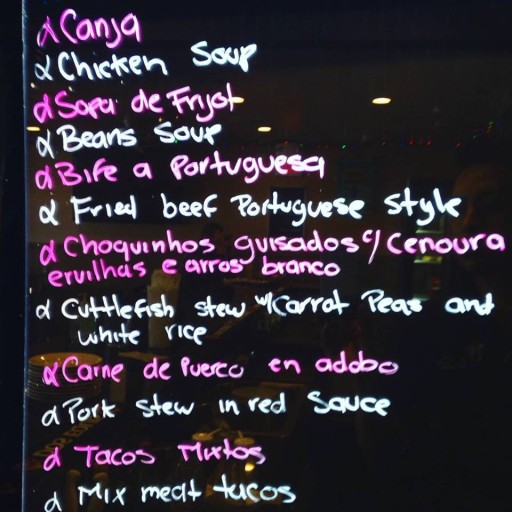 Canja
Chicken Soup
Sopa de Frijol
Beans Soup
Bife a Portuguesa
Fried beef Portuguese Style
Choquinhos guisados c/ Cenoura
ervilhas e arros branco
Cuttlefish stew w/Carrot Peas and
white rice
Carne de Puerco en adobo
Pork Stew in red Sauce
Tacos Mixtos
Mix meat tacos